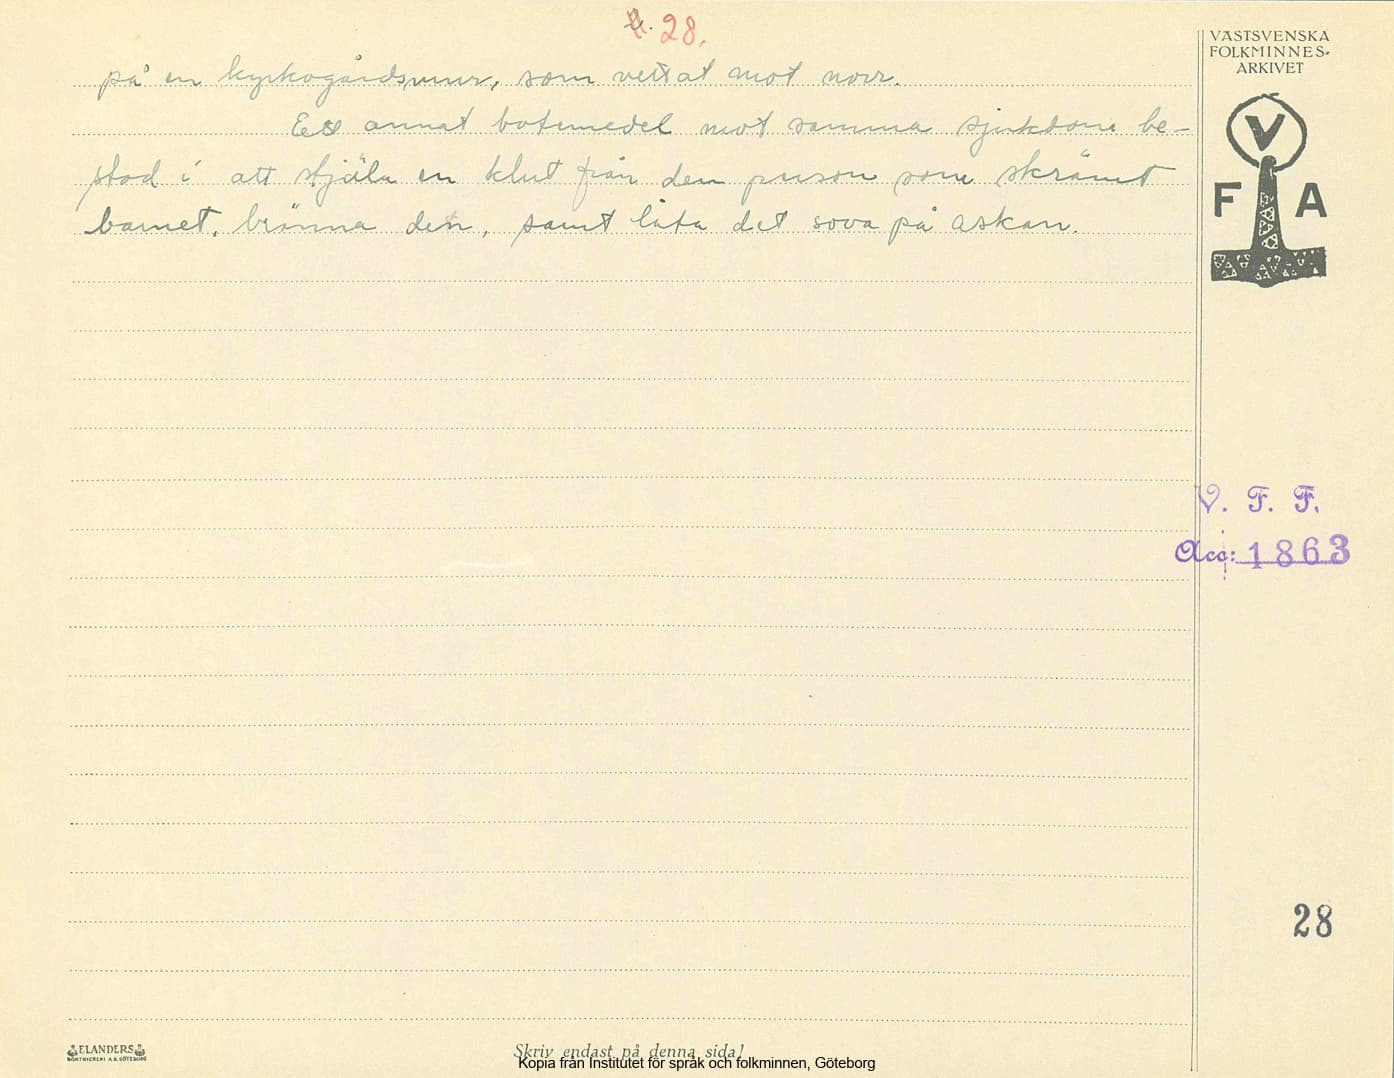 28.
på en kyrkogårdsmur, som vettat mot norr.
Ett annat botemedel mot samma sjukdom be-
stod i att stjäla en klut från den person som skrämt
barnet, bränna den, samt låta det sova på askan.
VÄSTSVENSKA
FOLKMINNES-
ARKIVET
V
F A
V. F. F.
Acc: 1863
28
ELANDERS
BOKTRYCKERI A.B. GÖTEBORG
Skriv endast på denna sida!
Kopia från Institutet för språk och folkminnen, Göteborg